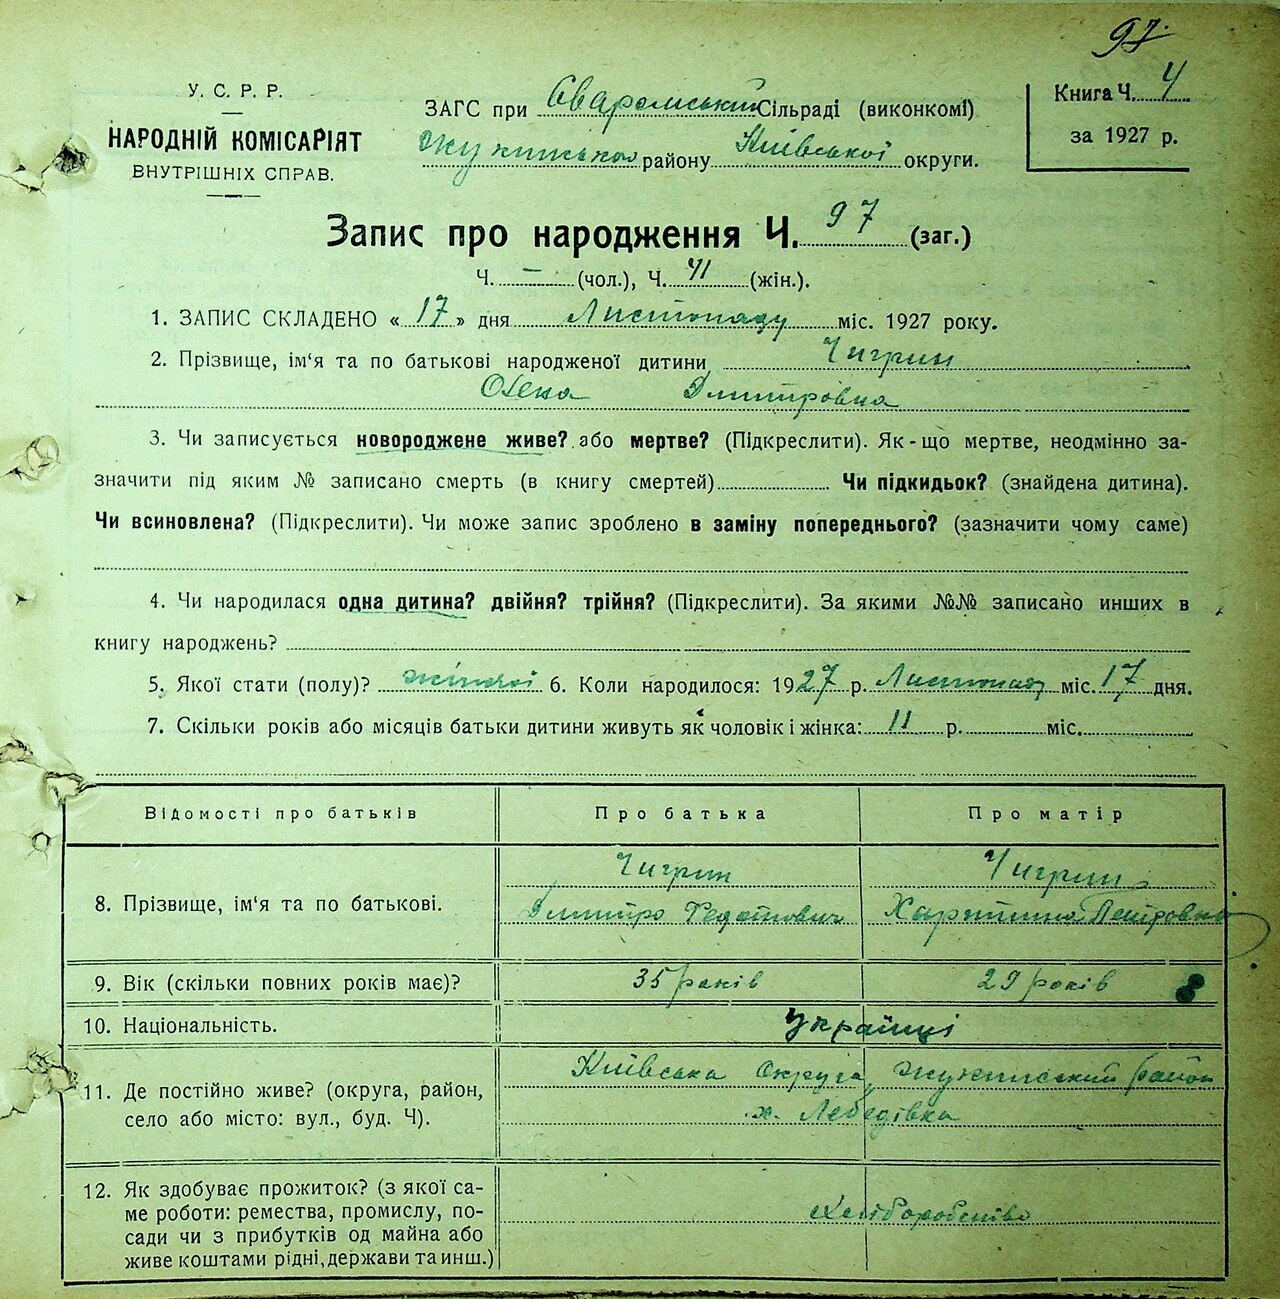 97.
У. С. Р. Р.
НАРОДНІЙ КОМІСАРІЯТ
ВНУТРІШНІХ СПРАВ.
ЗАГС при Сваромський Сільраді (виконкомі)
Жукинського району Київської округи.
Книга Ч. 4
за 1927 р.
Запис про народження Ч. 97 (заг.)
Ч. – (чол.), Ч. 41 (жін.).
1. ЗАПИС СКЛАДЕНО « 17 » дня Листопаду міс. 1927 року.
2. Прізвище, ім‘я та по батькові народженої дитини Чигрин
Олена Дмитровна
3. Чи записується новороджене живе? або мертве? (Підкреслити). Як-що мертве, неодмінно за-
значити під яким № записано смерть (в книгу смертей) Чи підкидьок? (знайдена дитина).
Чи всиновлена? (Підкреслити). Чи може запис зроблено в заміну попереднього? (зазначити чому саме)
4. Чи народилася одна дитина? двійня? трійня? (Підкреслити). За якими №№ записано инших в
книгу народжень?
5. Якої стати (полу)? жіночої 6. Коли народилося: 1927 р. Листопаду міс. 17 дня.
7. Скільки років або місяців батьки дитини живуть як чоловік і жінка: 11 р. міс.
Відомості про батьків Про батька Про матір
8. Прізвище, ім‘я та по батькові. Чигрин Чигрин
Дмитро Федотович Харитина Петровна
9. Вік (скільки повних років має)? 35 років 29 років
10. Національність. Українці
11. Де постійно живе? (округа, район, Київська Округа, Жукинський район
село або місто: вул., буд. Ч). х. Лебедівка
12. Як здобуває прожиток? (з якої са-
ме роботи: ремества, промислу, по- Хліборобство
сади чи з прибутків од майна або
живе коштами рідні, держави та инш.)